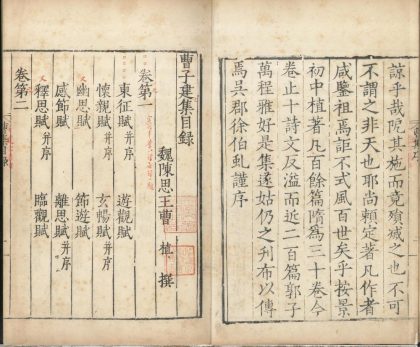 諒乎哉阨其施而竟殞滅之也不可
不謂之非天也耶尚賴定著凡作者
咸鑒祖焉詎不式風百世矣乎按景
初中植著凡百餘篇隋為三十卷今
卷止十詩文反溢而近二百篇郭子
萬程雅好是集遂姑仍之刋布以傳
焉吳郡徐伯虬謹序
曹子建集目錄
魏陳思王曹 植 撰
卷第一
東征賦并序 遊觀賦
懷親賦并序 玄暢賦并序
幽思賦 節遊賦
感節賦 離思賦并序
釋思賦并序 臨觀賦
卷第二